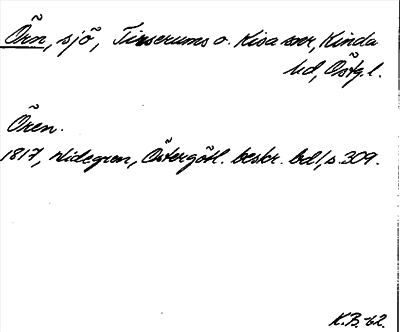 Örn, sjö, Tirserums o. Kisa snr, Kinda
hd, Östg.l.
Ören.
1817, Widegren, Östergötl. beskr. bd 1, s. 309.
K.B.-62.